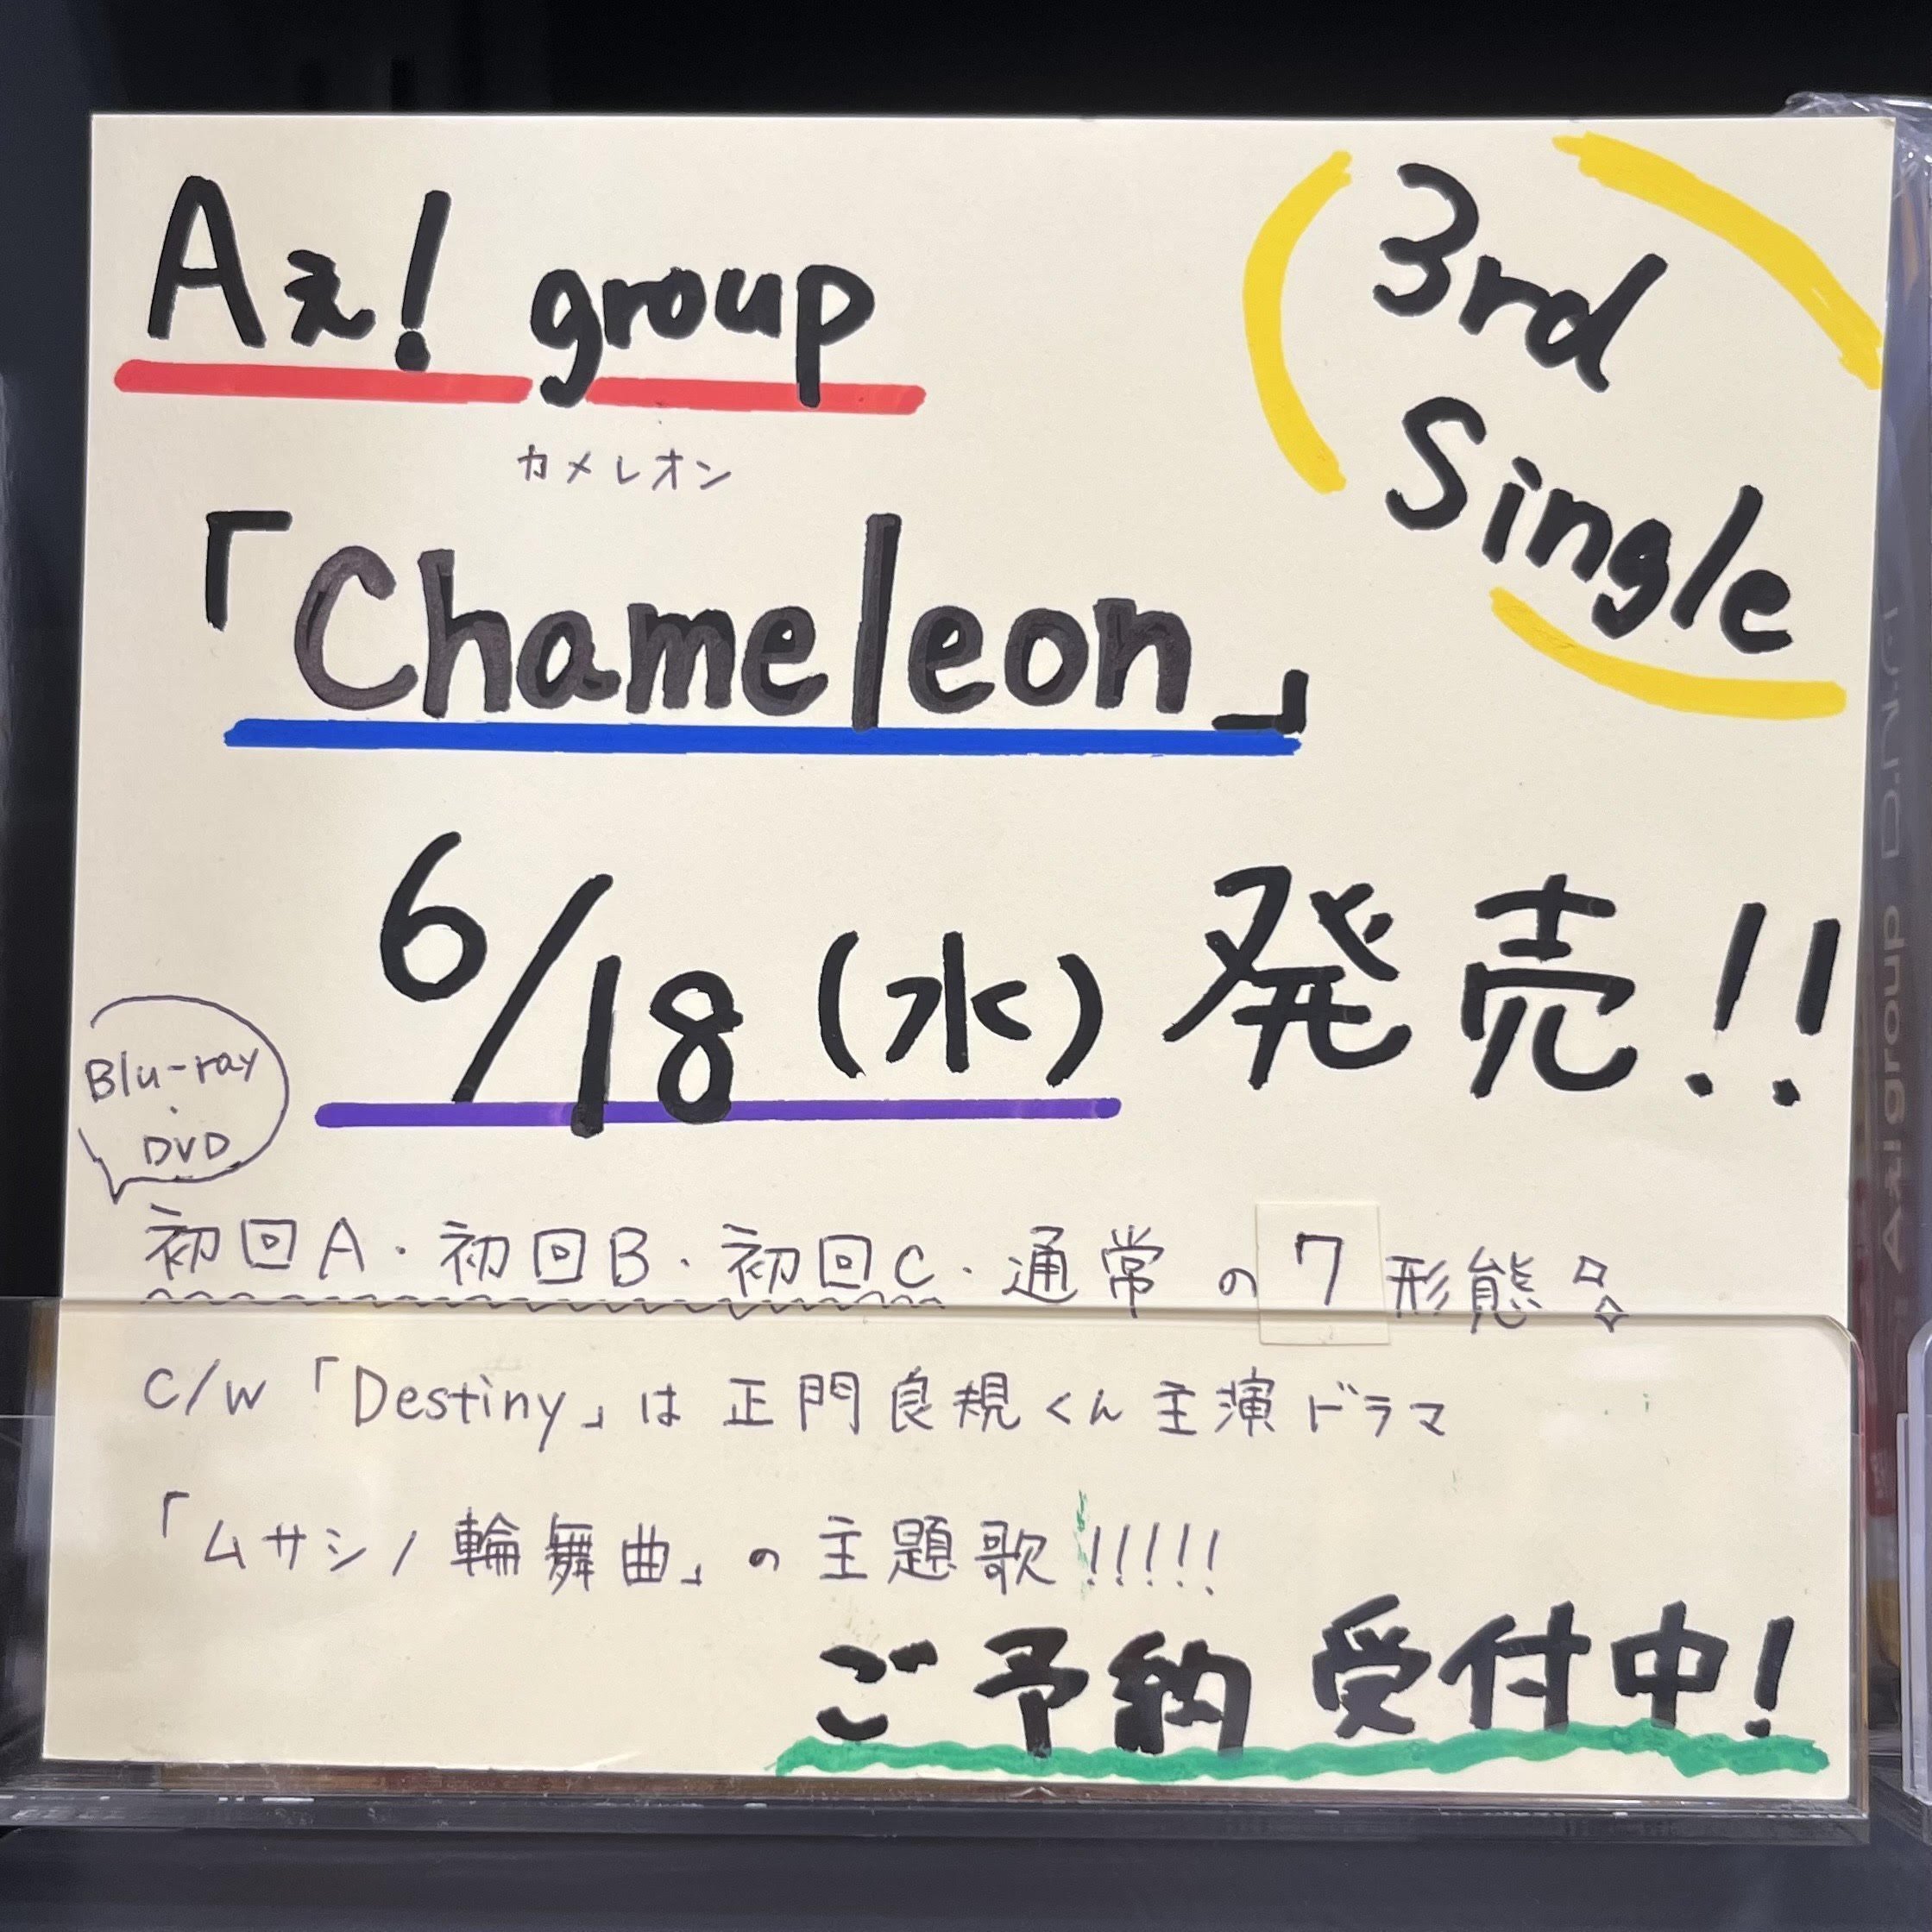 Aぇ! group
3rd
Single
カメレオン
「Chameleon」
6/18(水)発売!!
Blu-ray
・
DVD
初回A・初回B・初回C・通常の7形態
c/w「Destiny」は正門良規くん主演ドラマ
「ムサシノ輪舞曲」の主題歌!!!!!
ご予約受付中!
Aぇ! group D.N.A